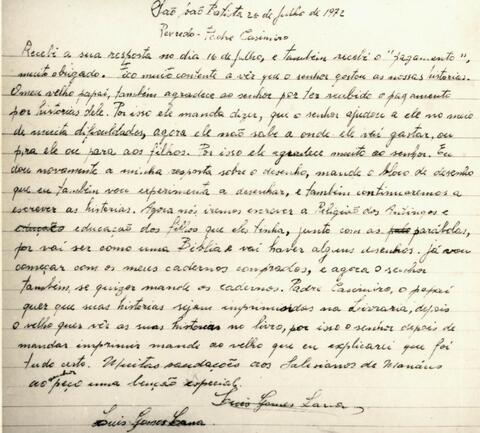 São João Batista 20 de Julho de 1972
Revredo: Padre Casimiro
Recebi a sua resposta no dia 16 de Julho, e também recebi o "pagamento",
muito obrigado. Fico muito contente a ver que o senhor gostou as nossas historias.
O meu velho papai, também agradece ao senhor por ter recebido o pagamento
por historias dele. Por isso ele manda dizer, que o senhor ajudou a ele no meio
de muita dificuldades, agora ele não sabe a onde ele vai gastar, ou
p/ra ele ou para aos filhos. Por isso ele agradece muito ao senhor. Eu
dou novamente a minha resposta sobre o desenho, mande o bloco de desenho
que eu também vou experimenta a desenhar, e também continuaremos a
escrever as historias. Agora nós iremos escrever a Religião dos Antingos e
educação dos filhos que ele tinha, junto com as parábolas,
por vai ser como uma Bíblia e vai haver alguns desenhos. Já vou
começar com os meus cadernos comprados, e agora o senhor
também, se quizer mande os cadernos. Padre Casimiro, o papai
quer que suas historias sejam imprimidas na Livraria, depois
o velho quer vêr as suas historias no livro, por isso o senhor depois de
mandar imprimir mande ao velho que eu explicarei que foi
tudo certo. Muitas saudações aos Salesianos de Manaus
ao senhor peço uma benção especial.
Luis Gomes Lana
Luis Gomes Lana